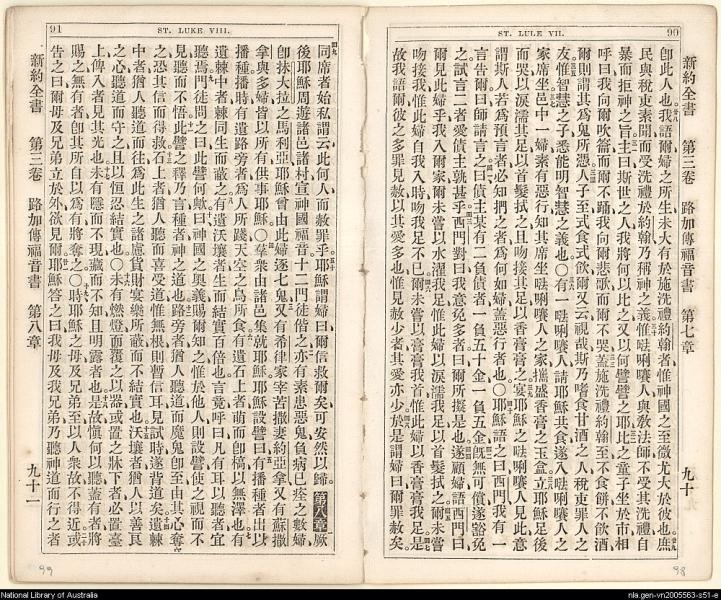 ST. LULE VII. 90
新約全書 第三卷 路加傳福音書 第七章 九十
卽此人也我語爾婦之所生未大有於施洗禮約翰者惟神國之至微尤大於彼也庶
民與稅吏素聞而受洗禮於約翰乃稱神之義惟㗁唎㘔人與敎法師不受其洗禮自
暴而拒神之旨主曰斯世之人我將何以比之又以何譬譬之耶比之童子坐於市相
呼曰我向爾吹籥而爾不踊我向爾悲歌而爾不哭蓋施洗禮約翰至不食餅不飮酒
爾則謂其爲鬼所憑人子至式食式飮爾又云視哉斯乃嗜食甘酒之人稅吏罪人之
友惟智慧之子悉能明智慧之義也○有一㗁唎㘔人請耶穌共食遂入㗁唎㘔人之
家席坐邑中一婦素有惡行知其席坐㗁唎㘔人之家攜盛香膏之玉盒立耶穌足後
而哭以淚濡其足以首髮拭之且吻接其足以香膏膏之宴耶穌之㗁唎㘔人見此意
謂斯人若爲預言者必知捫之者爲何如婦蓋惡行者也○耶穌語之曰西門我有一
言吿爾曰師請言之曰債主某有二負債者一負五十金一負五金旣無可償遂豁免
之試言二者愛債主孰甚乎西門對曰我意免多者曰爾所擬是也遂顧婦語西門曰
爾見此婦乎我入爾家爾未嘗以水濯我足惟此婦以淚濡我足以首髮拭之爾未嘗
吻接我惟此婦自我入時吻我足不已爾未嘗以膏膏我首惟此婦以香膏膏我足是
故我語爾彼之多罪見赦以其愛多也惟見赦少者其愛亦少於是謂婦曰爾罪赦矣
98
91 ST. LUKE VIII.
同席者始私謂云此何人而赦罪乎耶穌謂婦曰爾信救爾矣可安然以歸 第八章 厥
後耶穌周遊諸邑諸村宣神國福音十二門徒偕之亦有素患惡鬼負病已痊之數婦
卽抹大拉之馬利亞耶穌曾由此婦逐七鬼又有希律家宰苦撒妻約亞拿又有蘇撒
拿與多婦皆以所有供事耶穌○羣衆由諸邑集就耶穌耶穌設譬曰有播種者出以
播種播時有遺路旁者爲人所踐天空之鳥所食有遺石上者萌而卽槁以無澤也有
遺棘中者棘同生而蔽之有遺沃壤者生而結實百倍也言竟呼曰凡有耳以聽者宜
聽焉門徒問之曰此譬何歟曰神國之奧義賜爾知之惟於他人則設譬使之視而不
見聽而不悟此譬之釋乃言種者神之道也路旁者猶人聽道而魔鬼卽至由其心奪
之恐其信而得救石上者猶人聽而喜受道惟無根則暫信耳見試時遂背道矣遺棘
中者猶人聽道而往爲此生之諸慮貨財宴樂所蔽而不結實也沃壤者猶人以善良
之心聽道而守之且以恆忍結實也○未有燃燈而覆之以器或置之牀下者必置臺
上俾入者見其光也未有隱而不現藏而不知且明露者也是故愼何以聽蓋有者將
賜之無有者卽其所自以爲有將奪之○時耶穌之母及兄弟至以人衆故不得近或
告之曰爾母及兄弟立於外欲見爾耶穌答之曰我母及我兄弟乃聽神道而行之者
新約全書 第三卷 路加傳福音書 第八章 九十一
99
National Library of Australia
nla.gen-vn2005563-s51-e